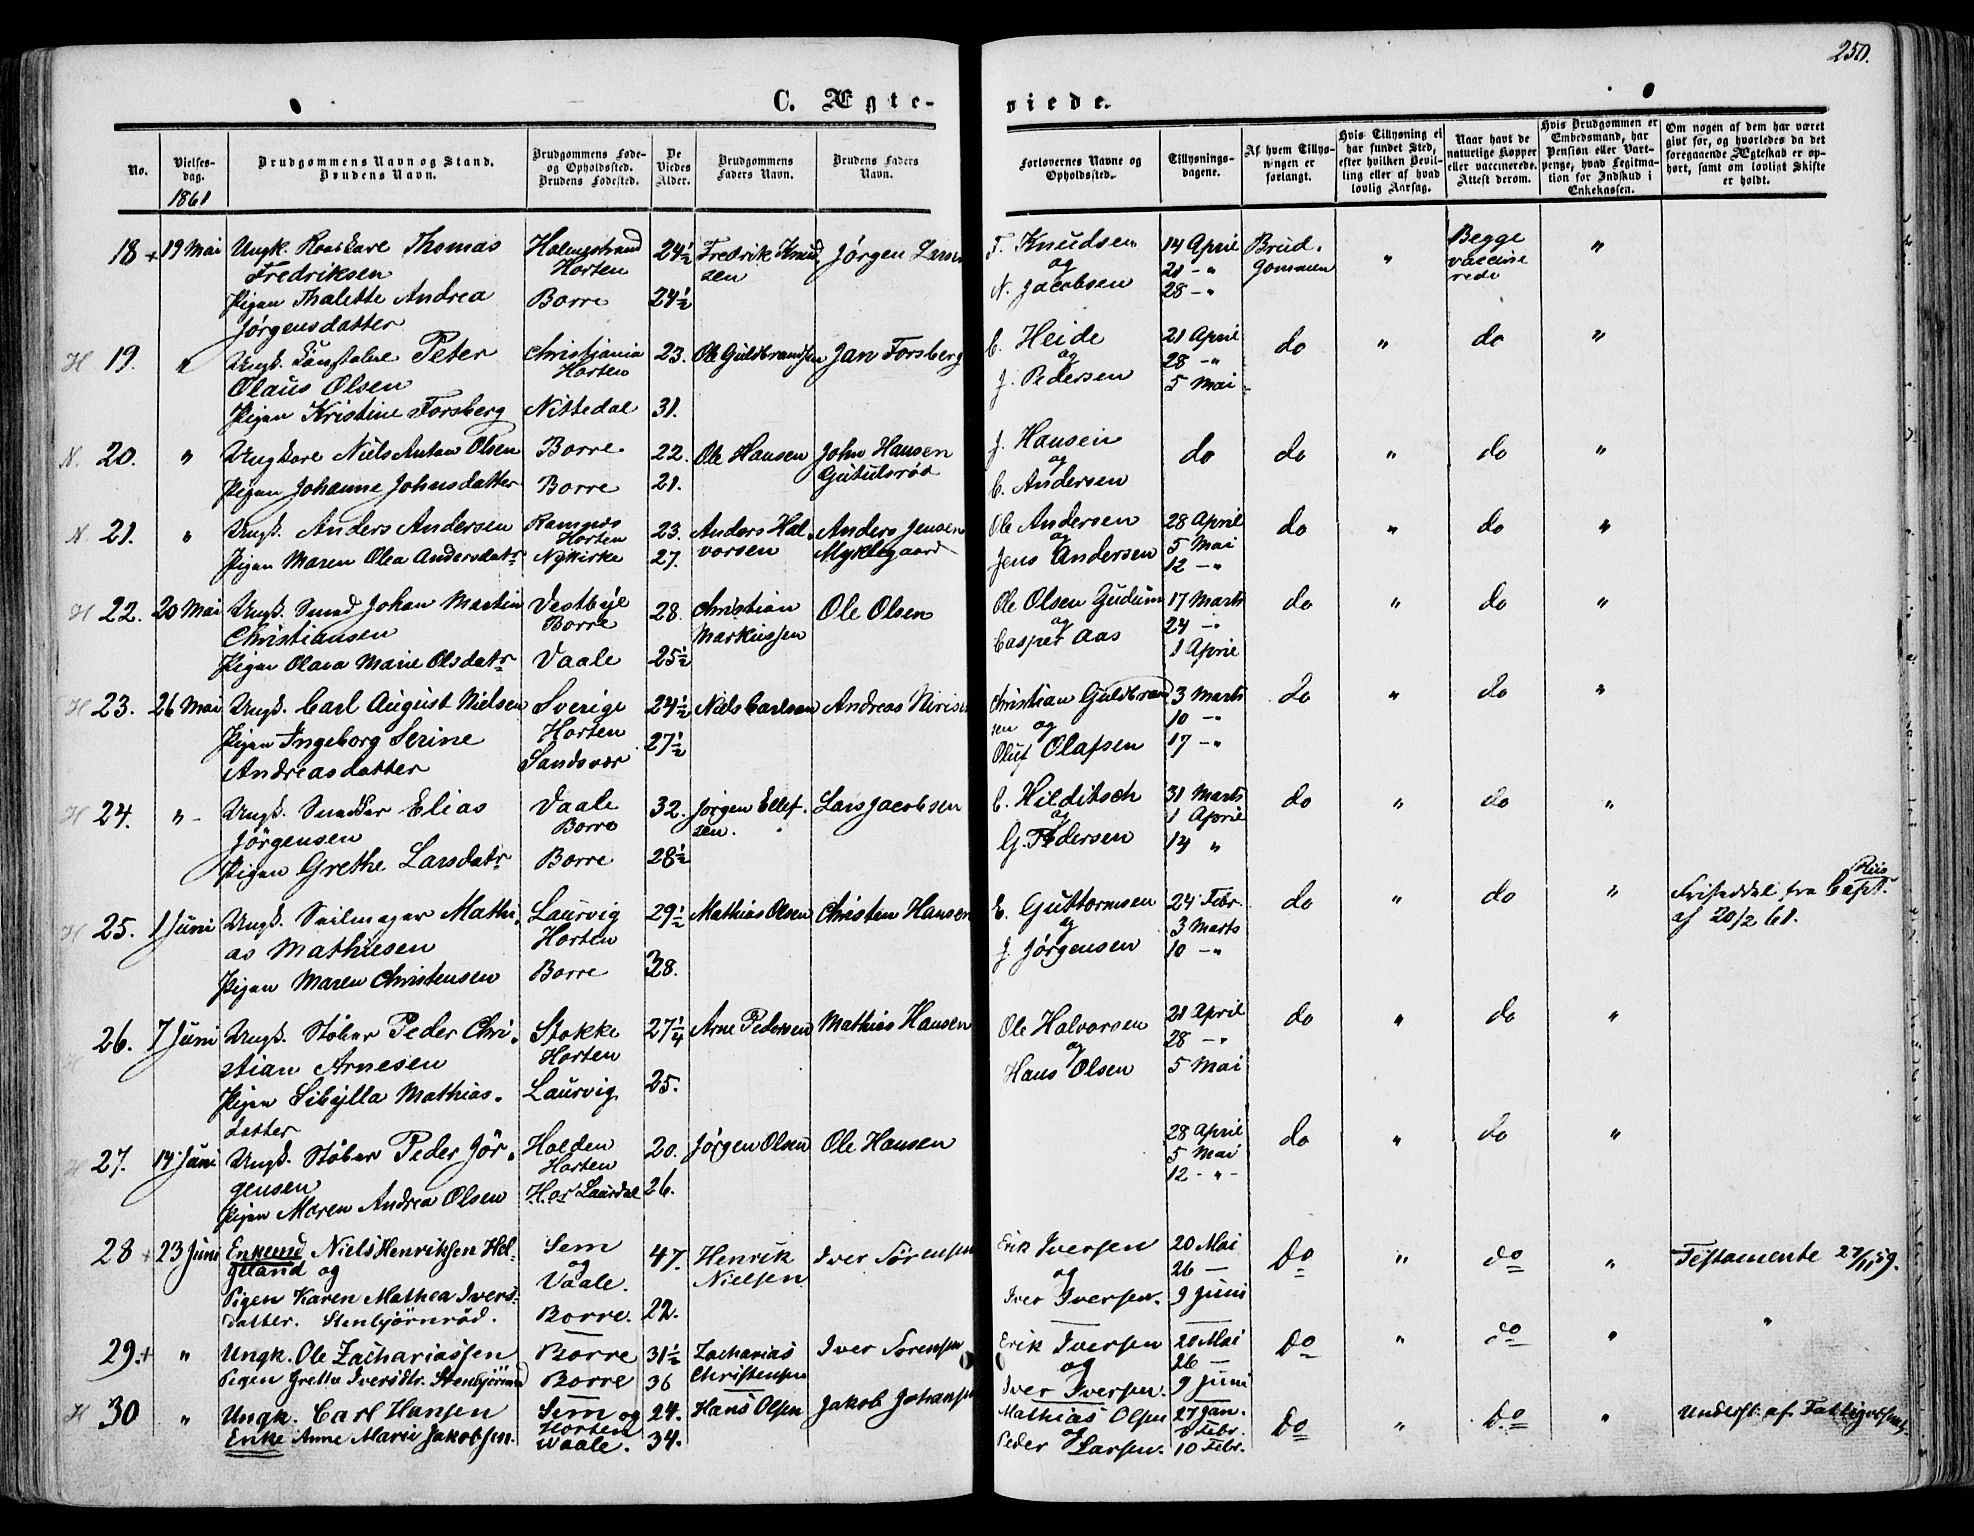 250.
C. Ægte- viede.
No.
Vielses-
dag.
1861
Brudgommens Navn og Stand.
Brudens Navn.
Brudgommens Føde-
og Opholdssted.
Brudens Fødested.
De
Viedes
Alder.
Brudgommens
Faders Navn.
Brudens Faders
Navn.
Forlovernes Navne og
Opholdssted.
Tillysnings-
dagene.
Af hvem Tillys-
ningen er
forlangt.
Hvis Tillysning ei
har fundet Sted,
efter hvilken Bevil-
ling eller af hvad
lovlig Aarsag.
Naar havt de
naturlige Kopper
eller vaccinerede.
Attest derom.
Hvis Brudgommen er
Embedsmand, har
Pension eller Vart-
penge, hvad Legitima-
tion for Indskud i
Enkekassen.
Om nogen af dem har været
givt før, og hvorledes da det
foregaaende Ægteskab er op-
hørt, samt om lovligt Skifte
er holdt.
18 + 19 Mai Ungk. Thomas
Fredriksen
Pigen Thalette Andrea
Jørgensdatter
Holmestrand
Horten
Borre
24½
24½
Fredrik Knud
sen
Jørgen Larsen
F. Knudsen
og
N. Jacobsen
14 April
21 - "
28 - "
Brud.
gommen
"
Begge
vaccine
rede
"
H 19. " Ungk. Peter
Olaus Olsen
Pigen Kristine Forsberg
Christiania
Horten
Nittedal
23.
31.
Ole Guldbrandsen
Jan Forsberg
C. Heide
og
J. Pedersen
21 April
28 - "
5 Mai
do
"
do
"
N. 20. " Ungkare Niels Anton Olsen
Pigen Johanne Johnsdatter
Borre
Borre
22.
21.
Ole Hansen
John Hansen
Gutulsrød
J. Hansen
og
C. Andersen
do
do
"
do
"
N 21. " Ungk. Anders Andersen
Pigen Maren Olea Andersdatr
Ramnes
Horten
Nykirke
23.
27.
Anders Hal.
vorsen
Anders Jensen
Myklegaard
Ole Andersen
og
Jens Andersen
28 April
5 Mai
12 - "
do
"
do
"
H 22. 20 Mai Ungk. Smed Johan Martin
Christiansen
Pigen Olava Marie Olsdatr
Vestbye
Borre
Vaale
28
25½
Christian
Markussen
Ole Olsen
Ole Olsen Gudum
og
Casper Aas
17 Marts
24 - "
1 April
do
"
do
"
H 23. 26 Mai Ungk. Carl August Nielsen
Pigen Ingeborg Serine
Andreasdatter
Sverige
Horten
Sandsvær
24½
27½
Niels Carlsen
Andreas
Christian Guldbrand
sen og
Oluf Olafsen
3 Marts
10 - "
17 - "
do
"
do
"
H 24. " - Ungk. Elias
Jørgensen
Pigen Grethe Larsdatr
Vaale
Borre
Borre
32.
28½
Jørgen Ellef.
sen.
Lars Jacobsen
C. Hilditsch
og
G. Pedersen
31 Marts
1 April
14 "
do
"
do
"
H 25. 1 Juni Ungk. Seilmager Mathi.
as Mathisen
Pigen Maren Christensen
Laurvig
Horten
Borre
29½
28.
Mathias Olsen
Christen Hansen
E. Guttormsen
og
J. Jørgensen
24 Febr.
3 Marts
10 - "
do
"
do
"
Friseddel fra Capt. Riis
af 20/2 61.
H 26. 7 Juni Ungk. Støber Peder Chri.
stian Arnesen
Pigen Sibylla Mathias.
datter
Stokke
Horten
Laurvig
27¼
25.
Arne Pedersen
Mathias Hansen
Ole Halvorsen
og
Hans Olsen
21 April
28 - "
5 Mai
do
"
do
"
H 27. 14 Juni Ungk. Støber Peder Jør.
gensen
Pigen Maren Andrea Olsen
Halden
Horten
Hos Laurdal
20.
26.
Jørgen Olsen
Ole Hansen
28 April
5 Mai
12 - " -
do
"
do
"
28 + 23 Juni Enkemd Niels Henriksen Hel-
geland og
Pigen Karen Mathea Ivers-
datter. Stenbjørnrød.
Sem
og
Vaale.
Borre.
47.
22.
Henrik
Nielsen
Iver Sørensen
Erik Iversen
og
Iver Iversen.
20 Mai
26 -
9 Juni
Do
"
do
"
Testamente 27/11 59.
29. + " Ungk. Ole Zachariassen
Pigen Grethe Iversdtr. Stenbjørnrød
Borre
Borre
31½
36
Zacharias
Christensen
Iver Sørensen
Erik Iversen
og
Iver Iversen.
20 Mai
26 -
9 Juni
Do
"
do
"
"
H 30 " Ungk. Carl Hansen
Enke Anne Marie Jakobsen.
Sem og
Horten
Waale.
24.
34.
Hans Olsen
Jakob Johansen
Mathias Olsen
og
Peder Larsen.
27 Jan.
3 Febr.
10 Febr.
Do
"
Do
"
Underst. af Fattigvæsenet.